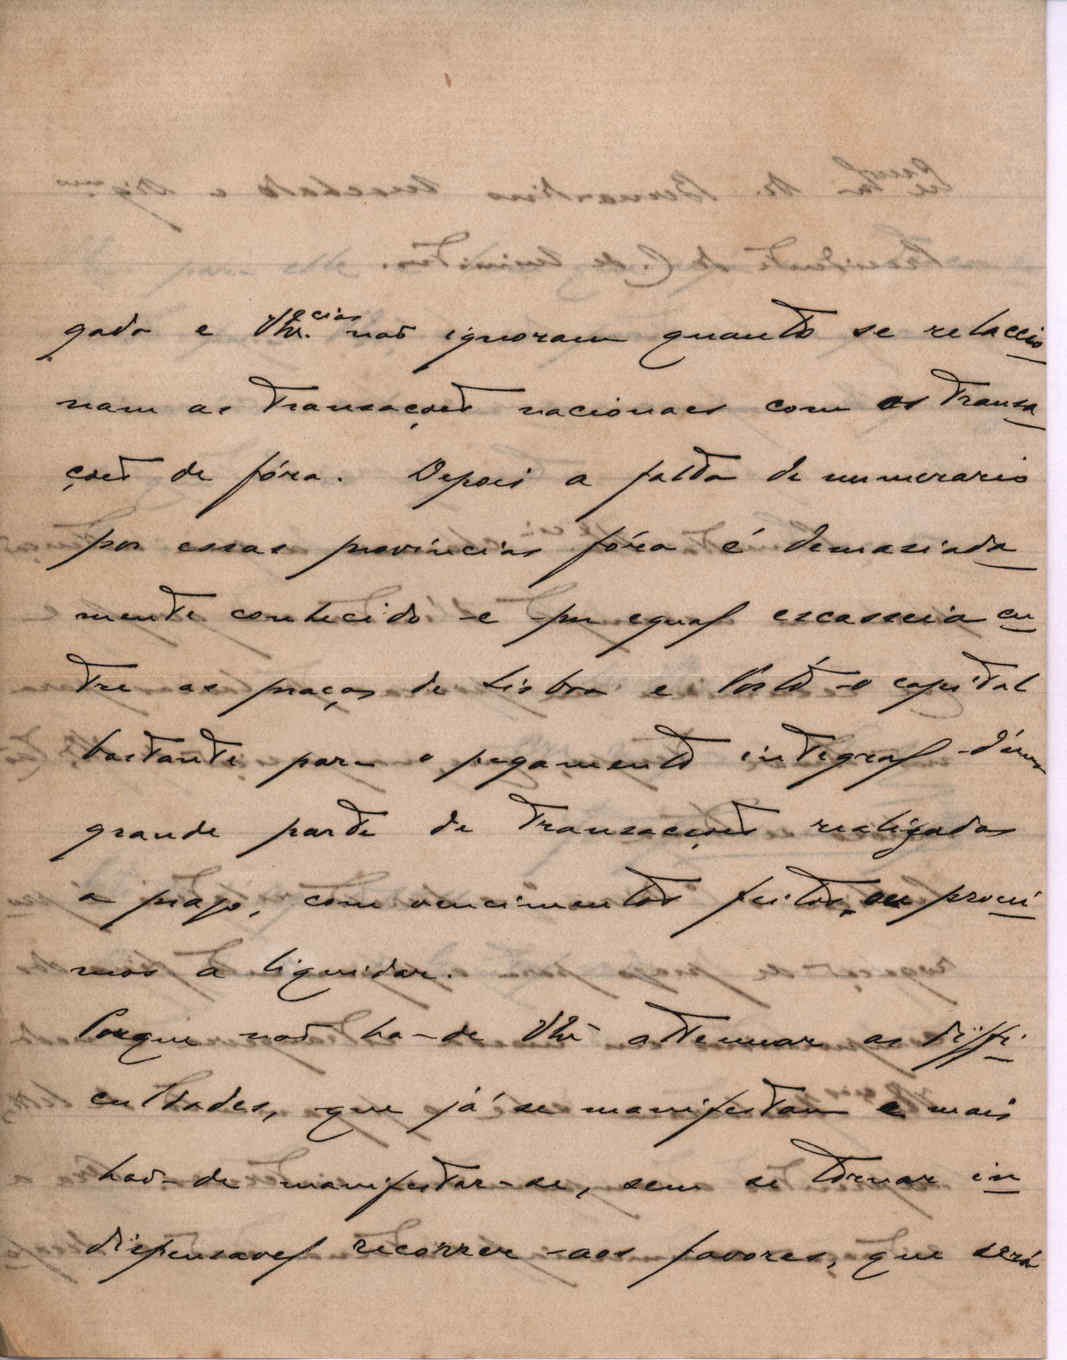 gado e V. Ex.cias não ignoram quanto se relaccio
nam as transacções nacionaes com as transa
ções de fóra. Depois a falta de numerario
por essas provincias fóra é demasiada
mente conhecido e por egual escasseia en
tre as praças de Lisboa e Porto o capital
bastante para o pagamento integral d'uma
grande parte de transacções realizadas
a prazo, com vencimentos feitos, ou proxi
mos a liquidar.
Porque não ha-de attenuar as diffi
culdades, que já se manifestam e mais
hão-de manifestar-se, sem se tornar in
dispensavel recorrer aos favores, que será